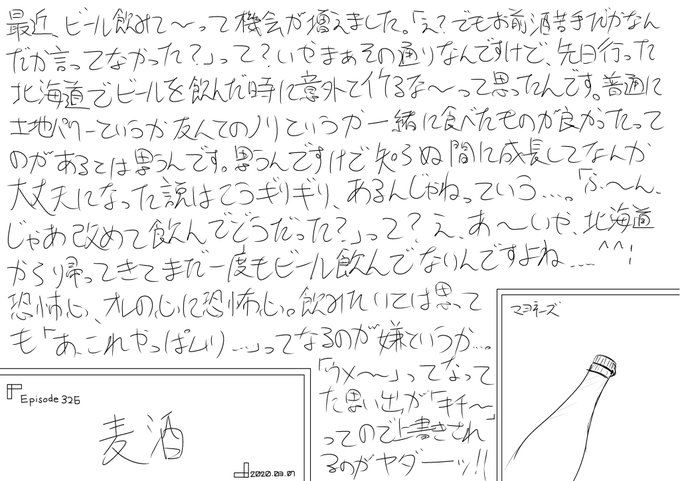 最近、ビール飲みて〜って機会が増えました。「え?でもお前酒苦手だかなん
だか言ってなかった?」って?いやまぁその通りなんですけど、先日行った
北海道でビールを飲んだ時に意外とイケるな〜って思ったんです。普通に
土地パワーというか友人とのノリというか一緒に食べたものが良かったって
のがあるとは思うんです。思うんですけど知らぬ間に成長してなんか
大丈夫になった説はこうギリギリ、あるんじゃねっていう…。「ふ〜ん、
じゃあ改めて飲んでどうだった?」って?え、あ〜いや、北海道
から帰ってきてまだ一度もビール飲んでないんですよね……^^;
恐怖心、オレの心に恐怖心。飲みたいとは思って
も「あ、これやっぱムリ…」ってなるのが嫌というか…。
「ウメ〜〜」ってなって
た思い出が「キチ〜」
ってので上書きされ
るのがヤダーッ!!
マヨネーズ
Episode 325
麦酒
2020.03.07